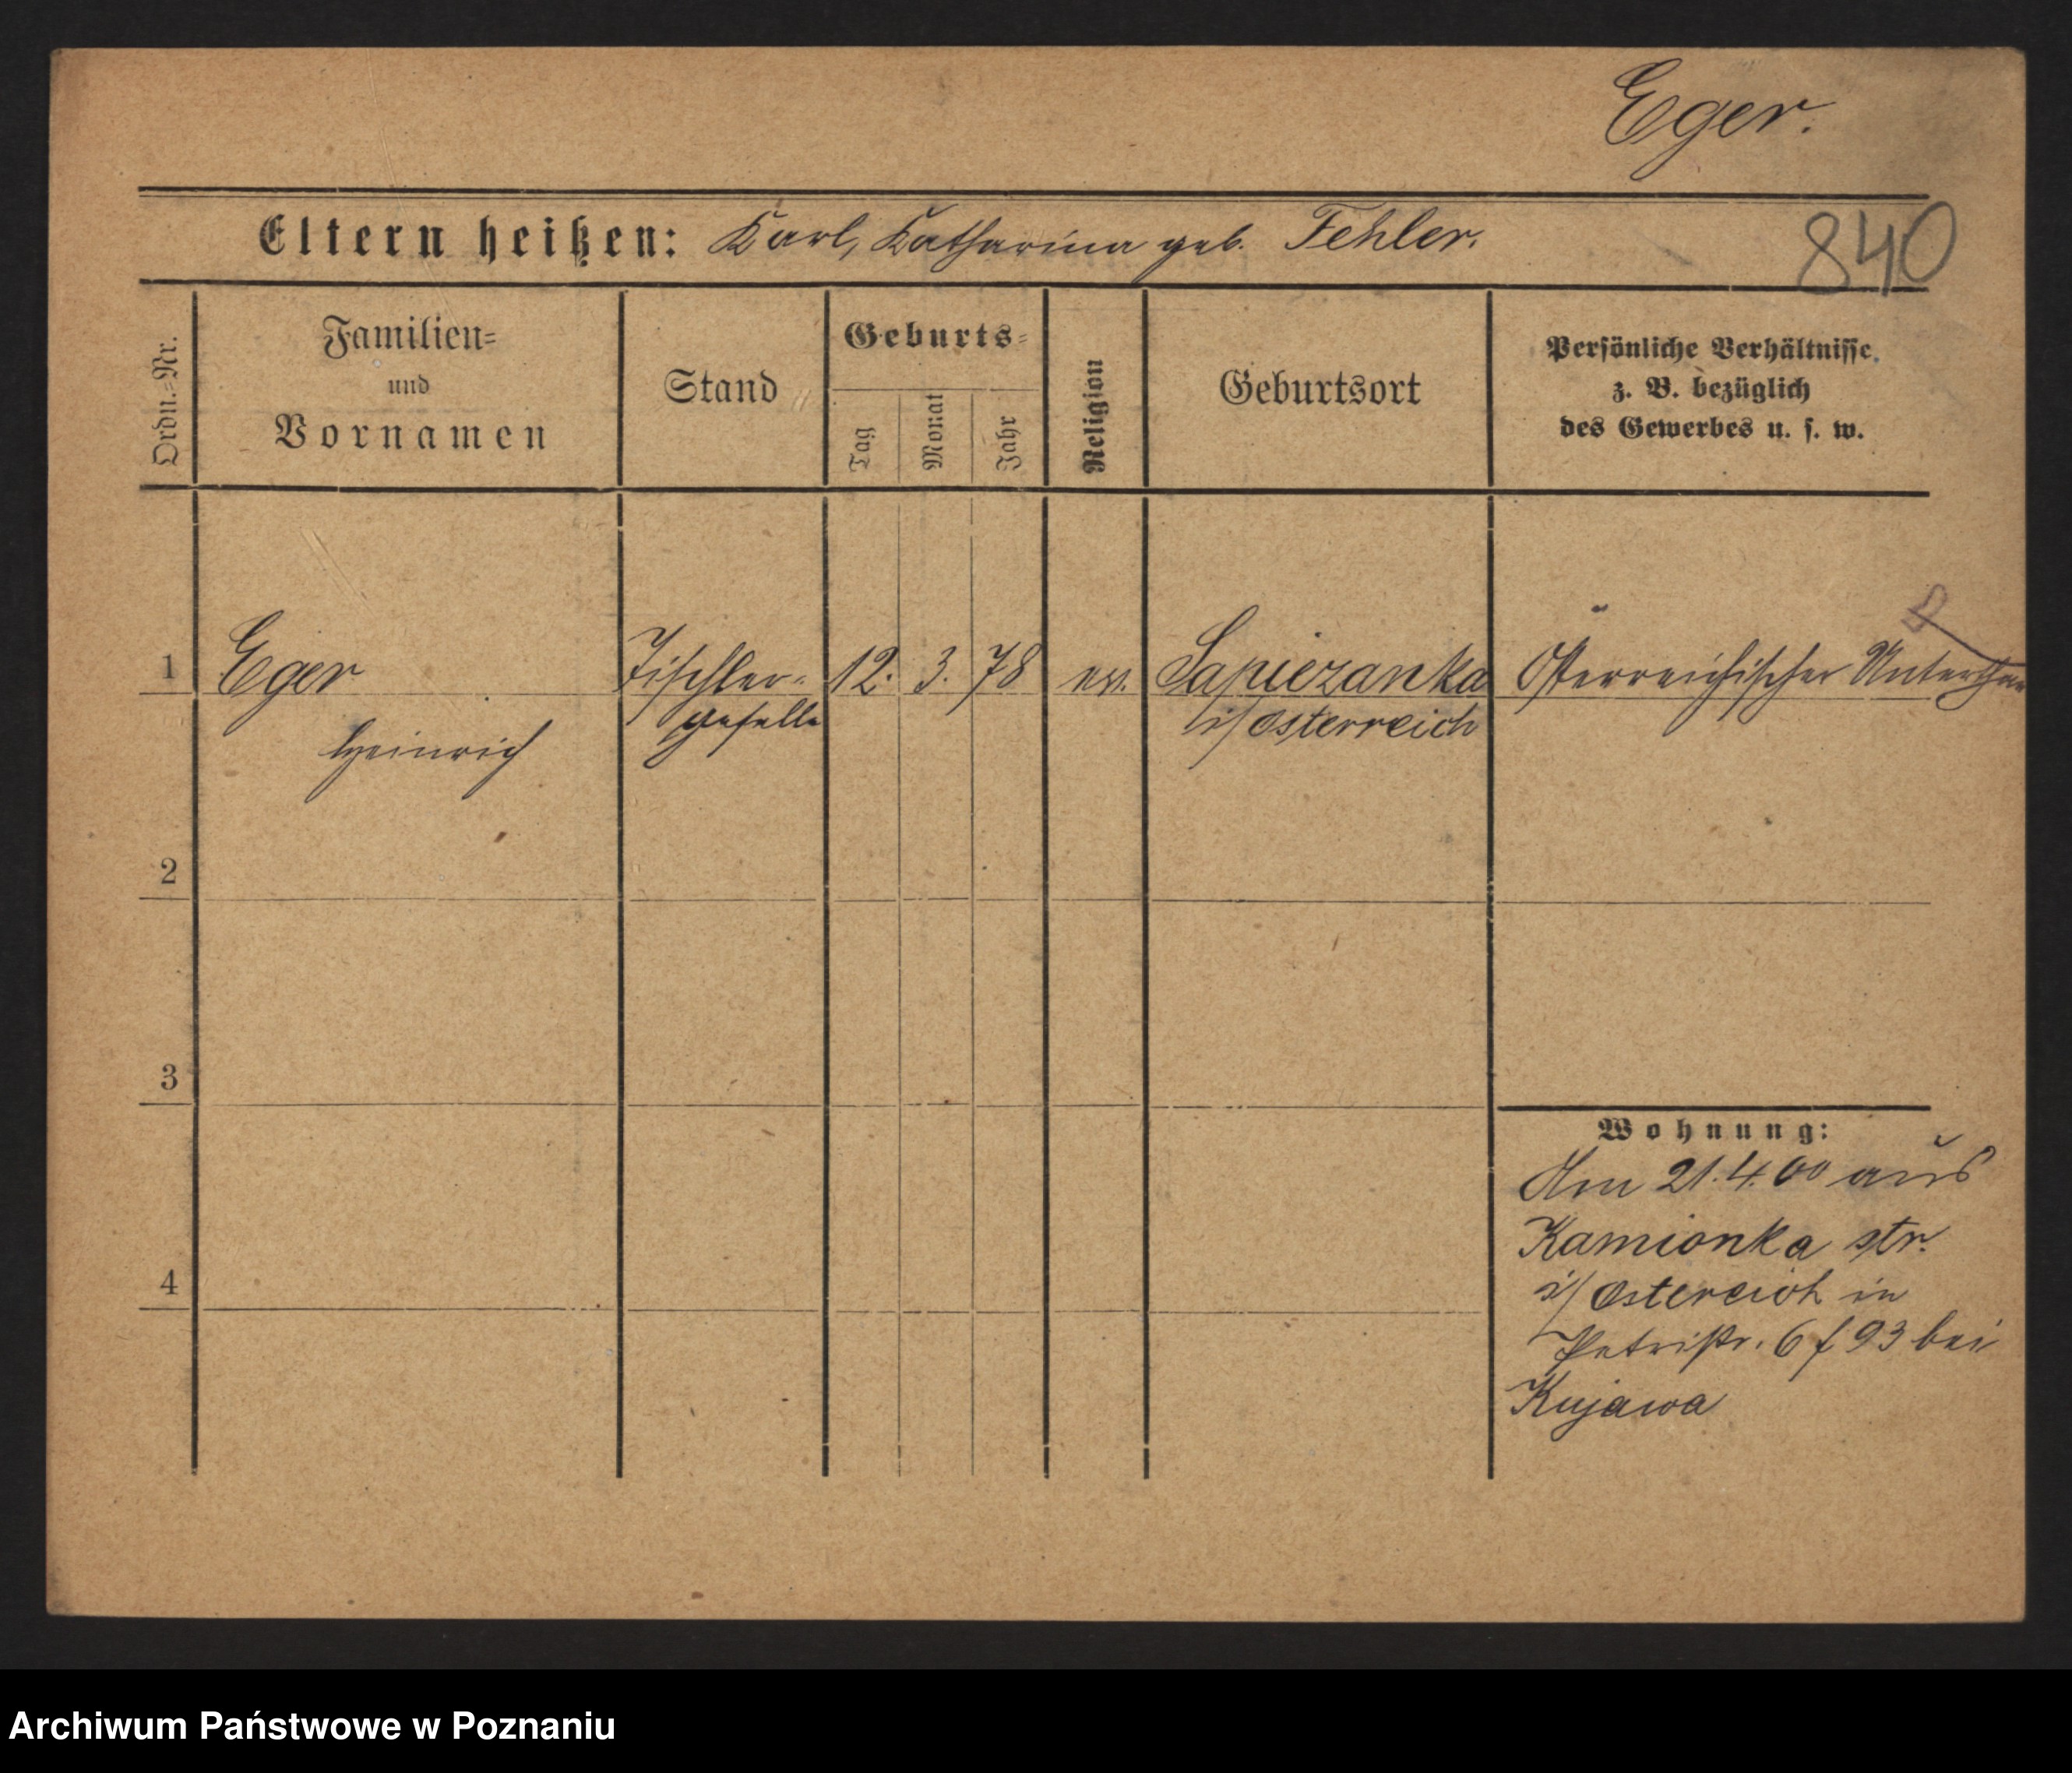 Eger.
Eltern heißen: Karl, Katharina geb. Fehler.
840
Ordn.=Nr.
Familien=
und
Vornamen
Stand
Geburts=
Tag
Monat
Jahr
Religion
Geburtsort
Persönliche Verhältnisse,
z. B. bezüglich
des Gewerbes u. s. w.
1 Eger Tischler- 12. 3. 78 ev. Sapiezanka Österreichischer Unterthan
Heinrich geselle i/Osterreich
2
3
4
Wohnung:
Am 21.4.00 aus
Kamionka str.
i/Ostereich in
Petristr. 6 f 93 bei
Kujawa
Archiwum Państwowe w Poznaniu